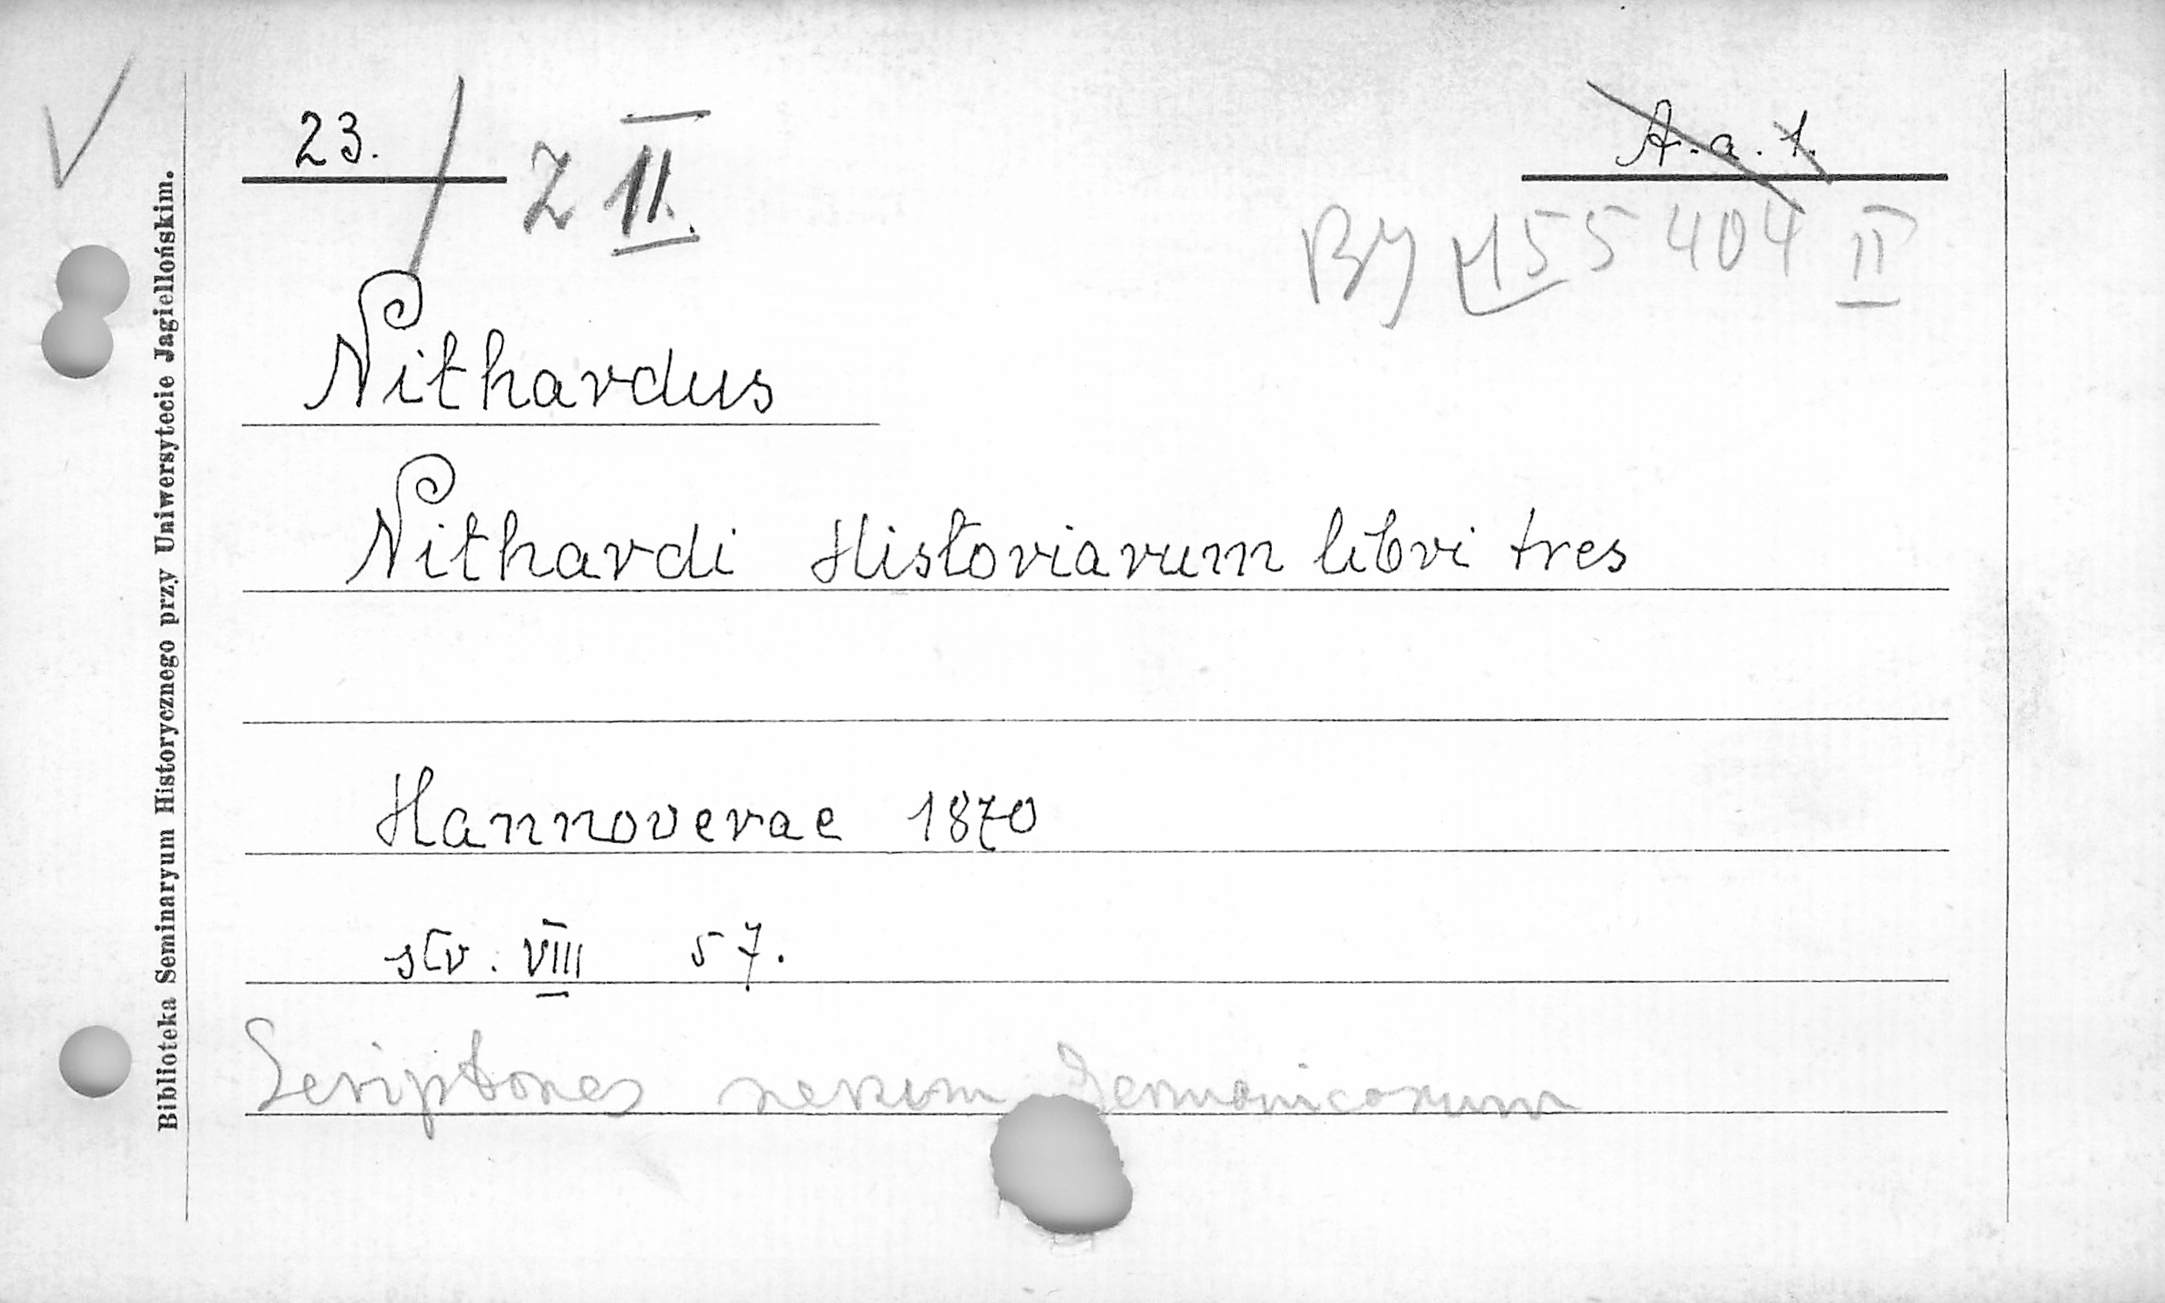 23. Z II. A.a.1.
BJ 455404 II
Nithardus
Nithardi Historiarum libri tres
Hannoverae 1870
str. VIII 57.
Scriptores rerum Germanicarum
Biblioteka Seminaryum Historycznego przy Uniwersytecie Jagiellońskim.